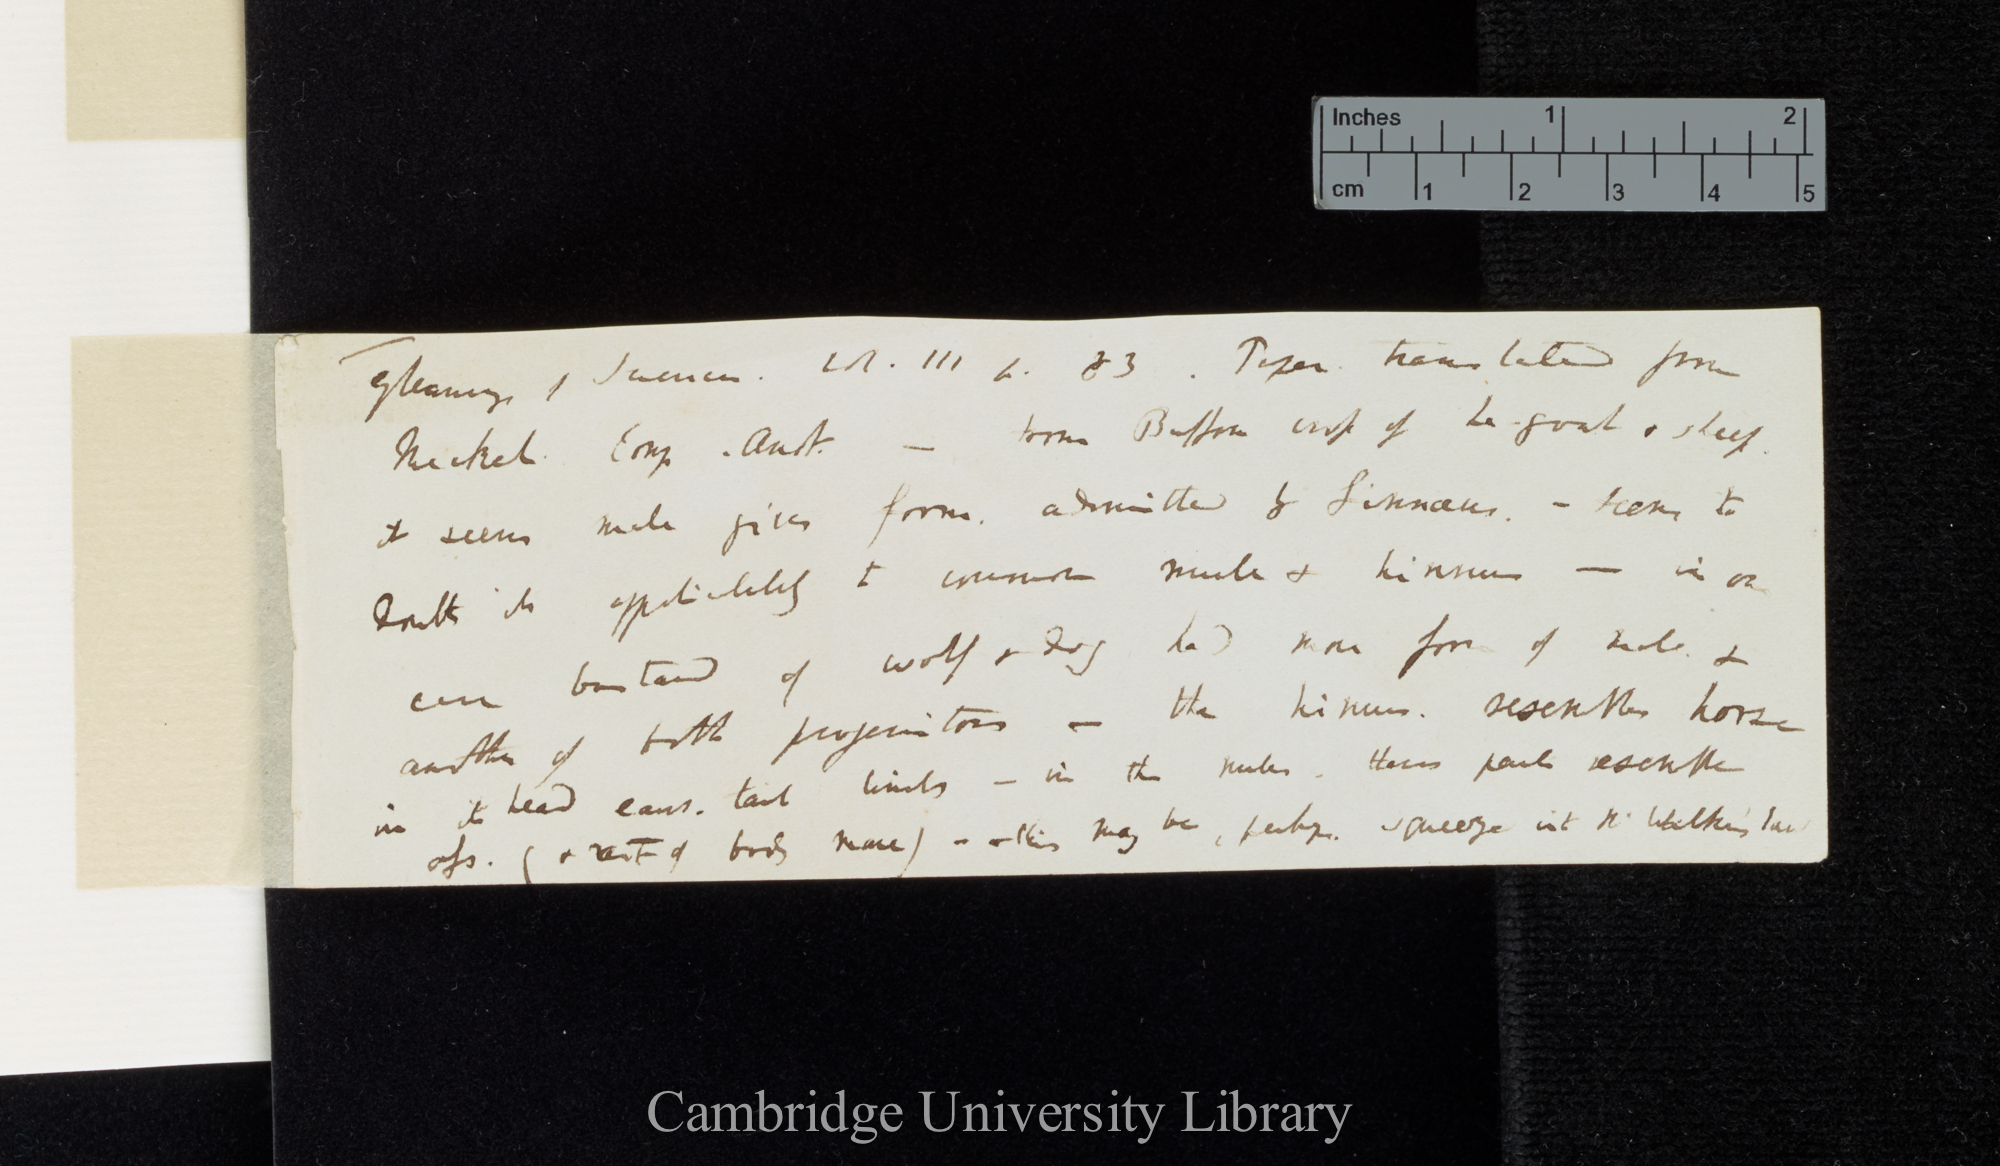 Inches 1 2
cm 1 2 3 4 5
Gleanings of Science. Vol. III p. 83. Paper translated from
Meckel Comp. Anat. — from Buffon cross of he-goat & sheep.
it seems male gives form. admitted by Linnæus. — seems to
doubt its applicability to common mule & hinnus — in one
case bastard of wolf & dog had more form of male. &
another of both progenitors — the hinnus. resembles horse
in its head ears. tail limbs — in the mules. these parts resemble
ass. (& rest of body mare) — this may be, perhaps. squeezed into Mr Walker's law
Cambridge University Library